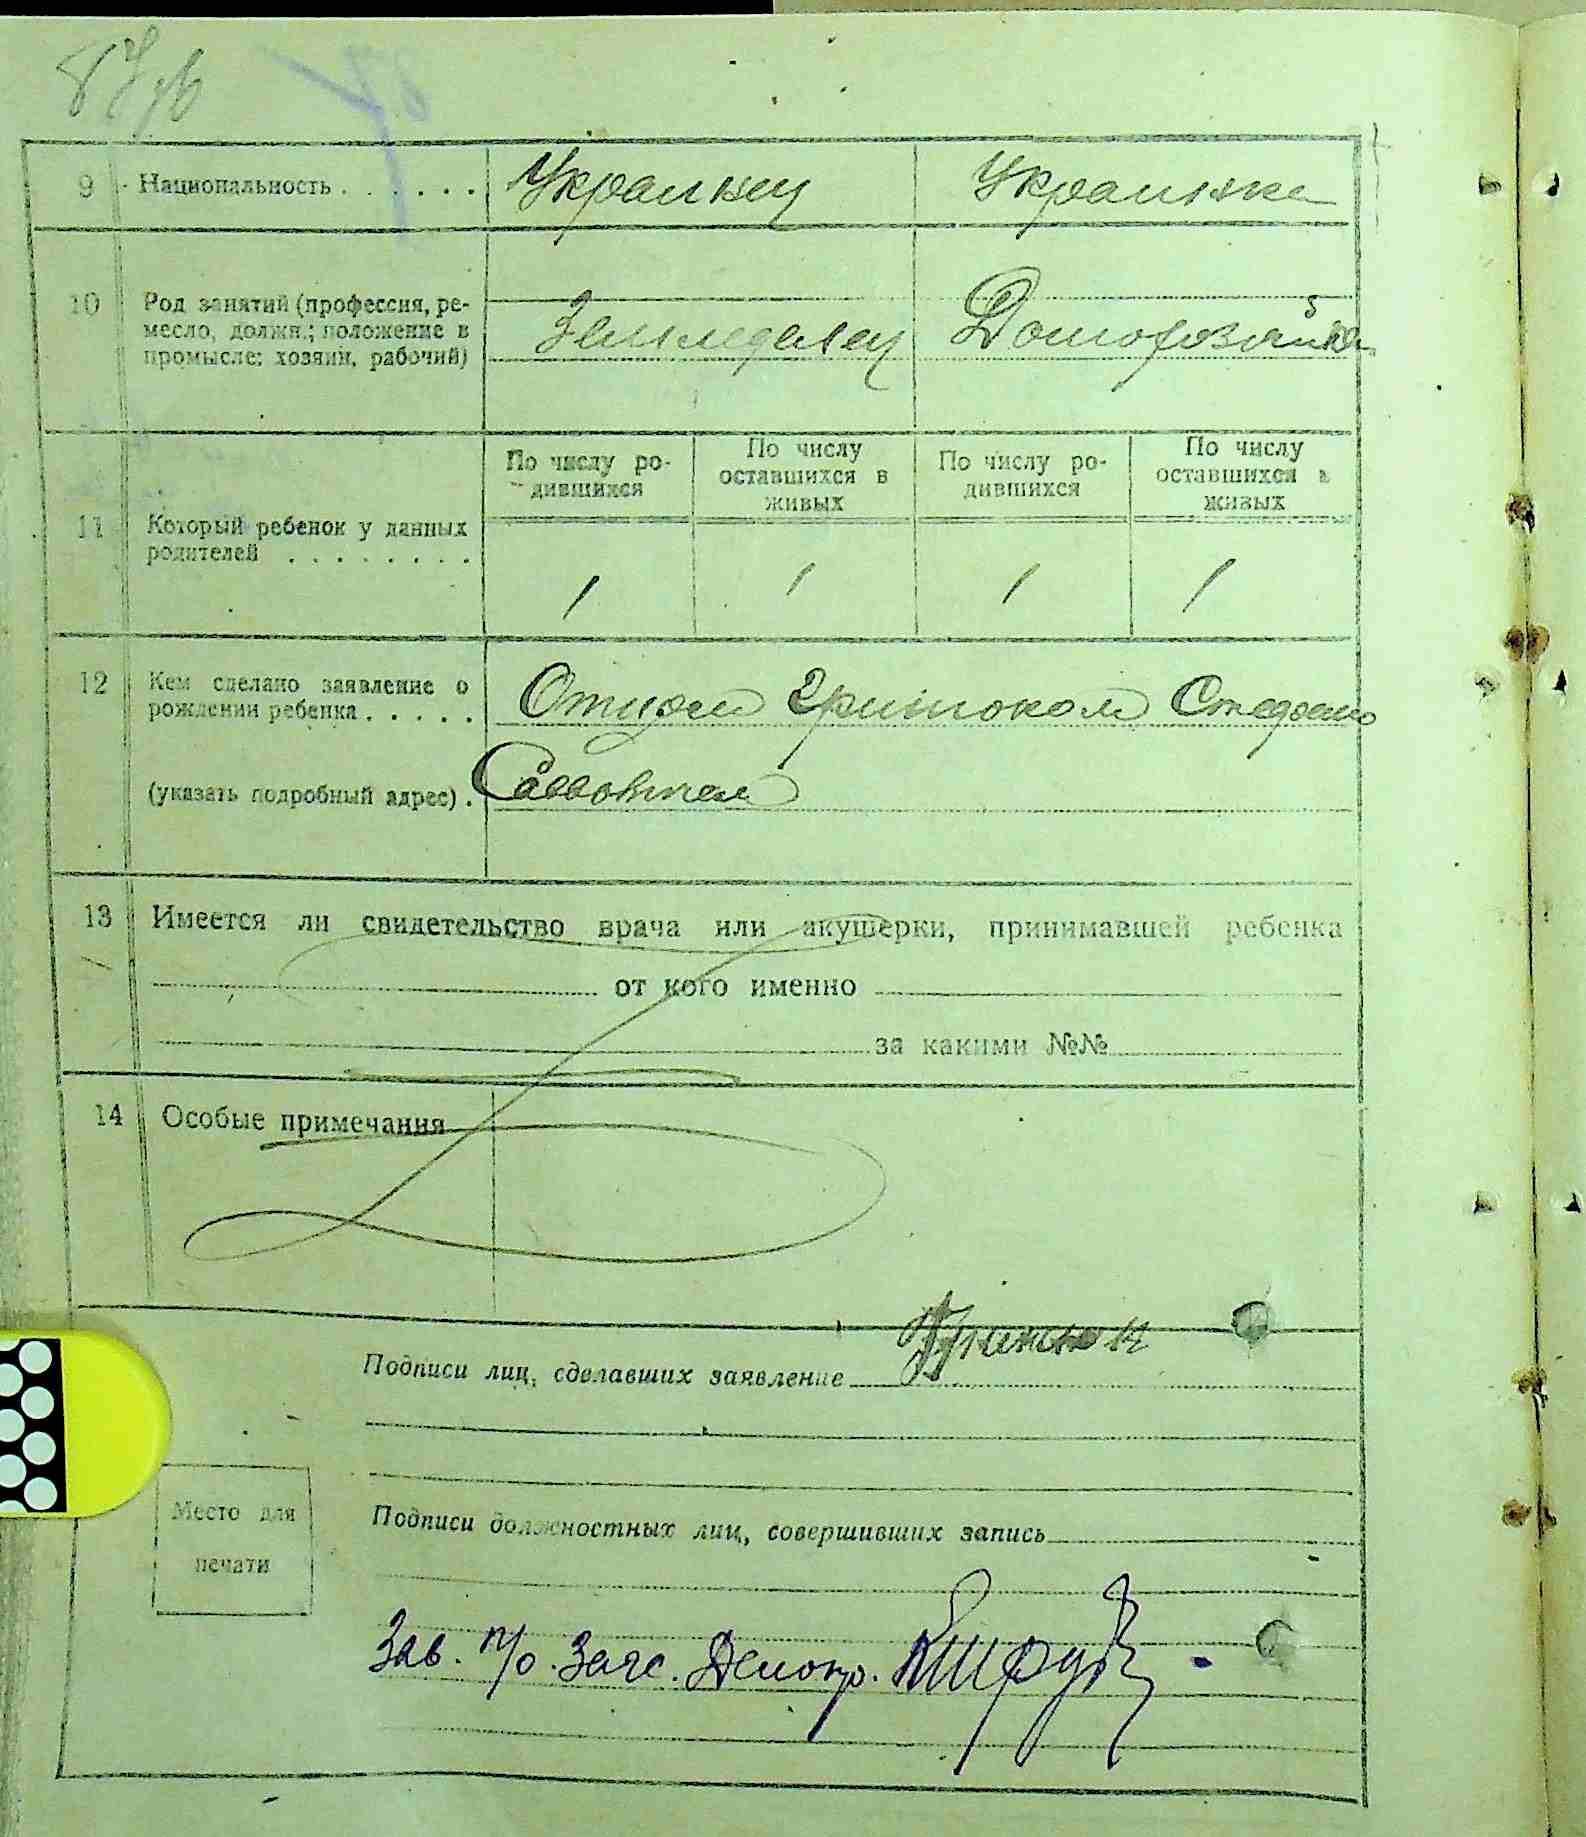 87
9 Национальность . . . . . . Украинец Украинка
10 Род занятий (профессия, ре-
месло, должн.; положение в
промысле: хозяин, рабочий)
Земледелец Домохозяйка
По числу ро-
дившихся
По числу
оставшихся в
живых
По числу ро-
дившихся
По числу
оставшихся в
живых
11 Который ребенок у данных
родителей . . . . . . . .
1 1 1 1
12 Кем сделано заявление о
рождении ребенка . . . . .
Отцом Гринюком
(указать подробный адрес) .
13 Имеется ли свидетельство врача или акушерки, принимавшей ребенка
от кого именно
за какими №№
14 Особые примечания
Подписи лиц, сделавших заявление
Место для
печати
Подписи должностных лиц, совершивших запись
Зав. п/о. Загс.